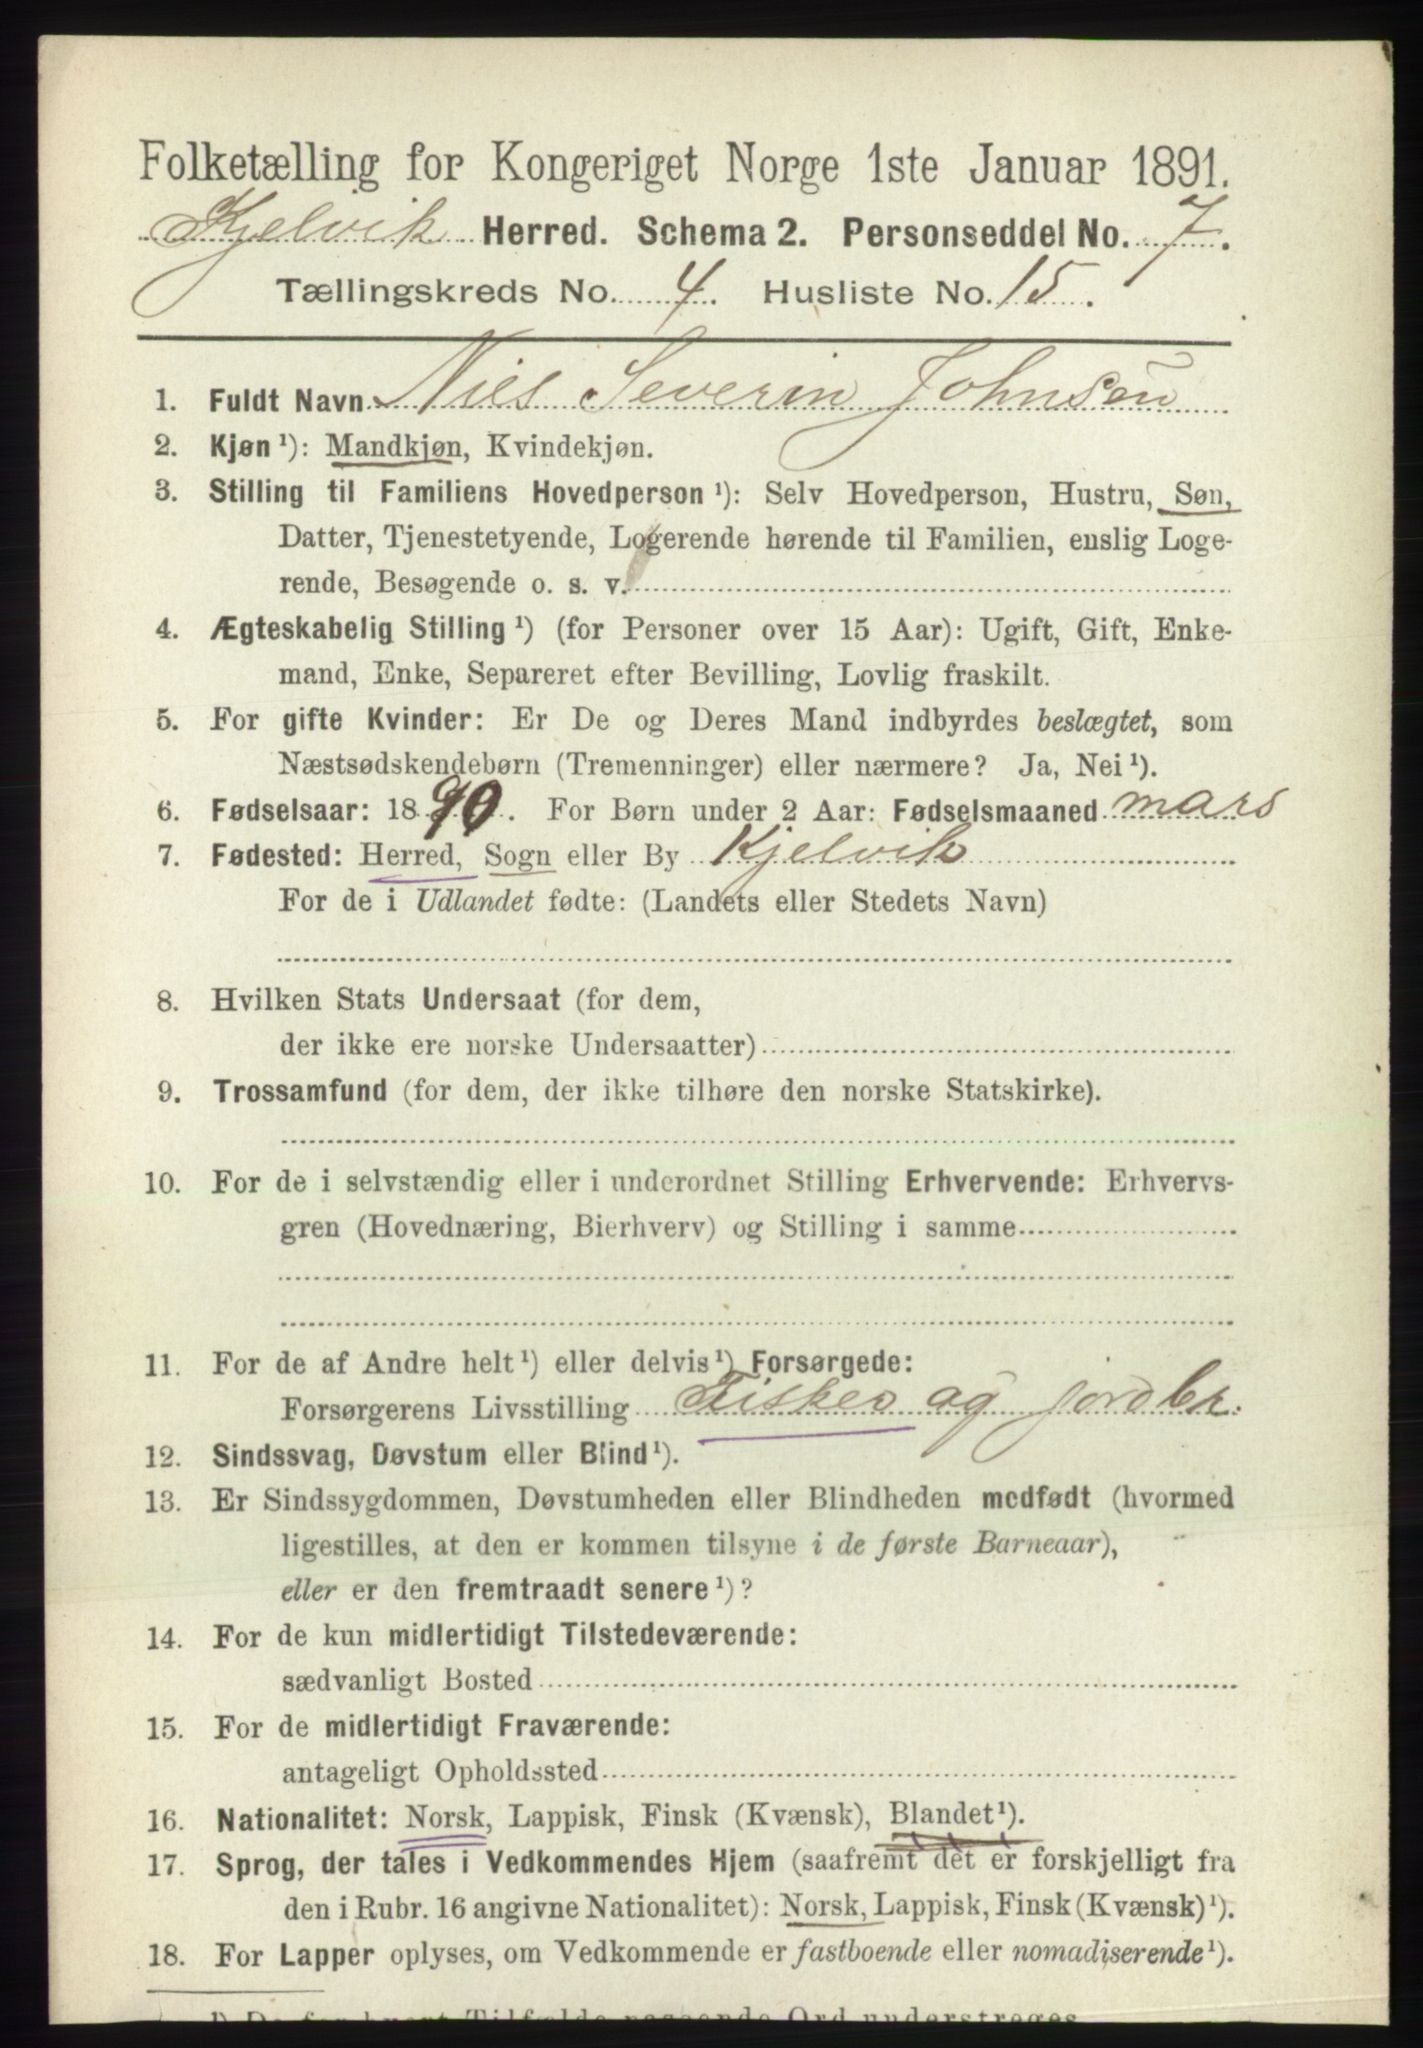 Folketælling for Kongeriget Norge 1ste Januar 1891.
Kjelvik Herred. Schema 2. Personseddel No. 7.
Tællingskreds No. 4. Husliste No. 15.
1. Fuldt Navn Nils Severin Johnsen
2. Kjøn ¹): Mandkjøn, Kvindekjøn.
3. Stilling til Familiens Hovedperson ¹): Selv Hovedperson, Hustru, Søn,
Datter, Tjenestetyende, Logerende hørende til Familien, enslig Loge-
rende, Besøgende o. s. v.
4. Ægteskabelig Stilling ¹) (for Personer over 15 Aar): Ugift, Gift, Enke-
mand, Enke, Separeret efter Bevilling, Lovlig fraskilt.
5. For gifte Kvinder: Er De og Deres Mand indbyrdes beslægtet, som
Næstsødskendebørn (Tremenninger) eller nærmere? Ja, Nei ¹).
6. Fødselsaar: 1890. For Børn under 2 Aar: Fødselsmaaned mars
7. Fødested: Herred, Sogn eller By Kjelvik
For de i Udlandet fødte: (Landets eller Stedets Navn)
8. Hvilken Stats Undersaat (for dem,
der ikke ere norske Undersaatter)
9. Trossamfund (for dem, der ikke tilhøre den norske Statskirke).
10. For de i selvstændig eller i underordnet Stilling Erhvervende: Erhvervs-
gren (Hovednæring, Bierhverv) og Stilling i samme
11. For de af Andre helt ¹) eller delvis ¹) Forsørgede:
Forsørgerens Livsstilling Fisker og jordbr.
12. Sindssvag, Døvstum eller Blind ¹).
13. Er Sindssygdommen, Døvstumheden eller Blindheden medfødt (hvormed
ligestilles, at den er kommen tilsyne i de første Barneaar),
eller er den fremtraadt senere ¹)?
14. For de kun midlertidigt Tilstedeværende:
sædvanligt Bosted
15. For de midlertidigt Fraværende:
antageligt Opholdssted
16. Nationalitet: Norsk, Lappisk, Finsk (Kvænsk), Blandet ¹).
17. Sprog, der tales i Vedkommendes Hjem (saafremt det er forskjelligt fra
den i Rubr. 16 angivne Nationalitet): Norsk, Lappisk, Finsk (Kvænsk) ¹).
18. For Lapper oplyses, om Vedkommende er fastboende eller nomadiserende ¹).
¹) De for hvert Tilfælde passende Ord understreges